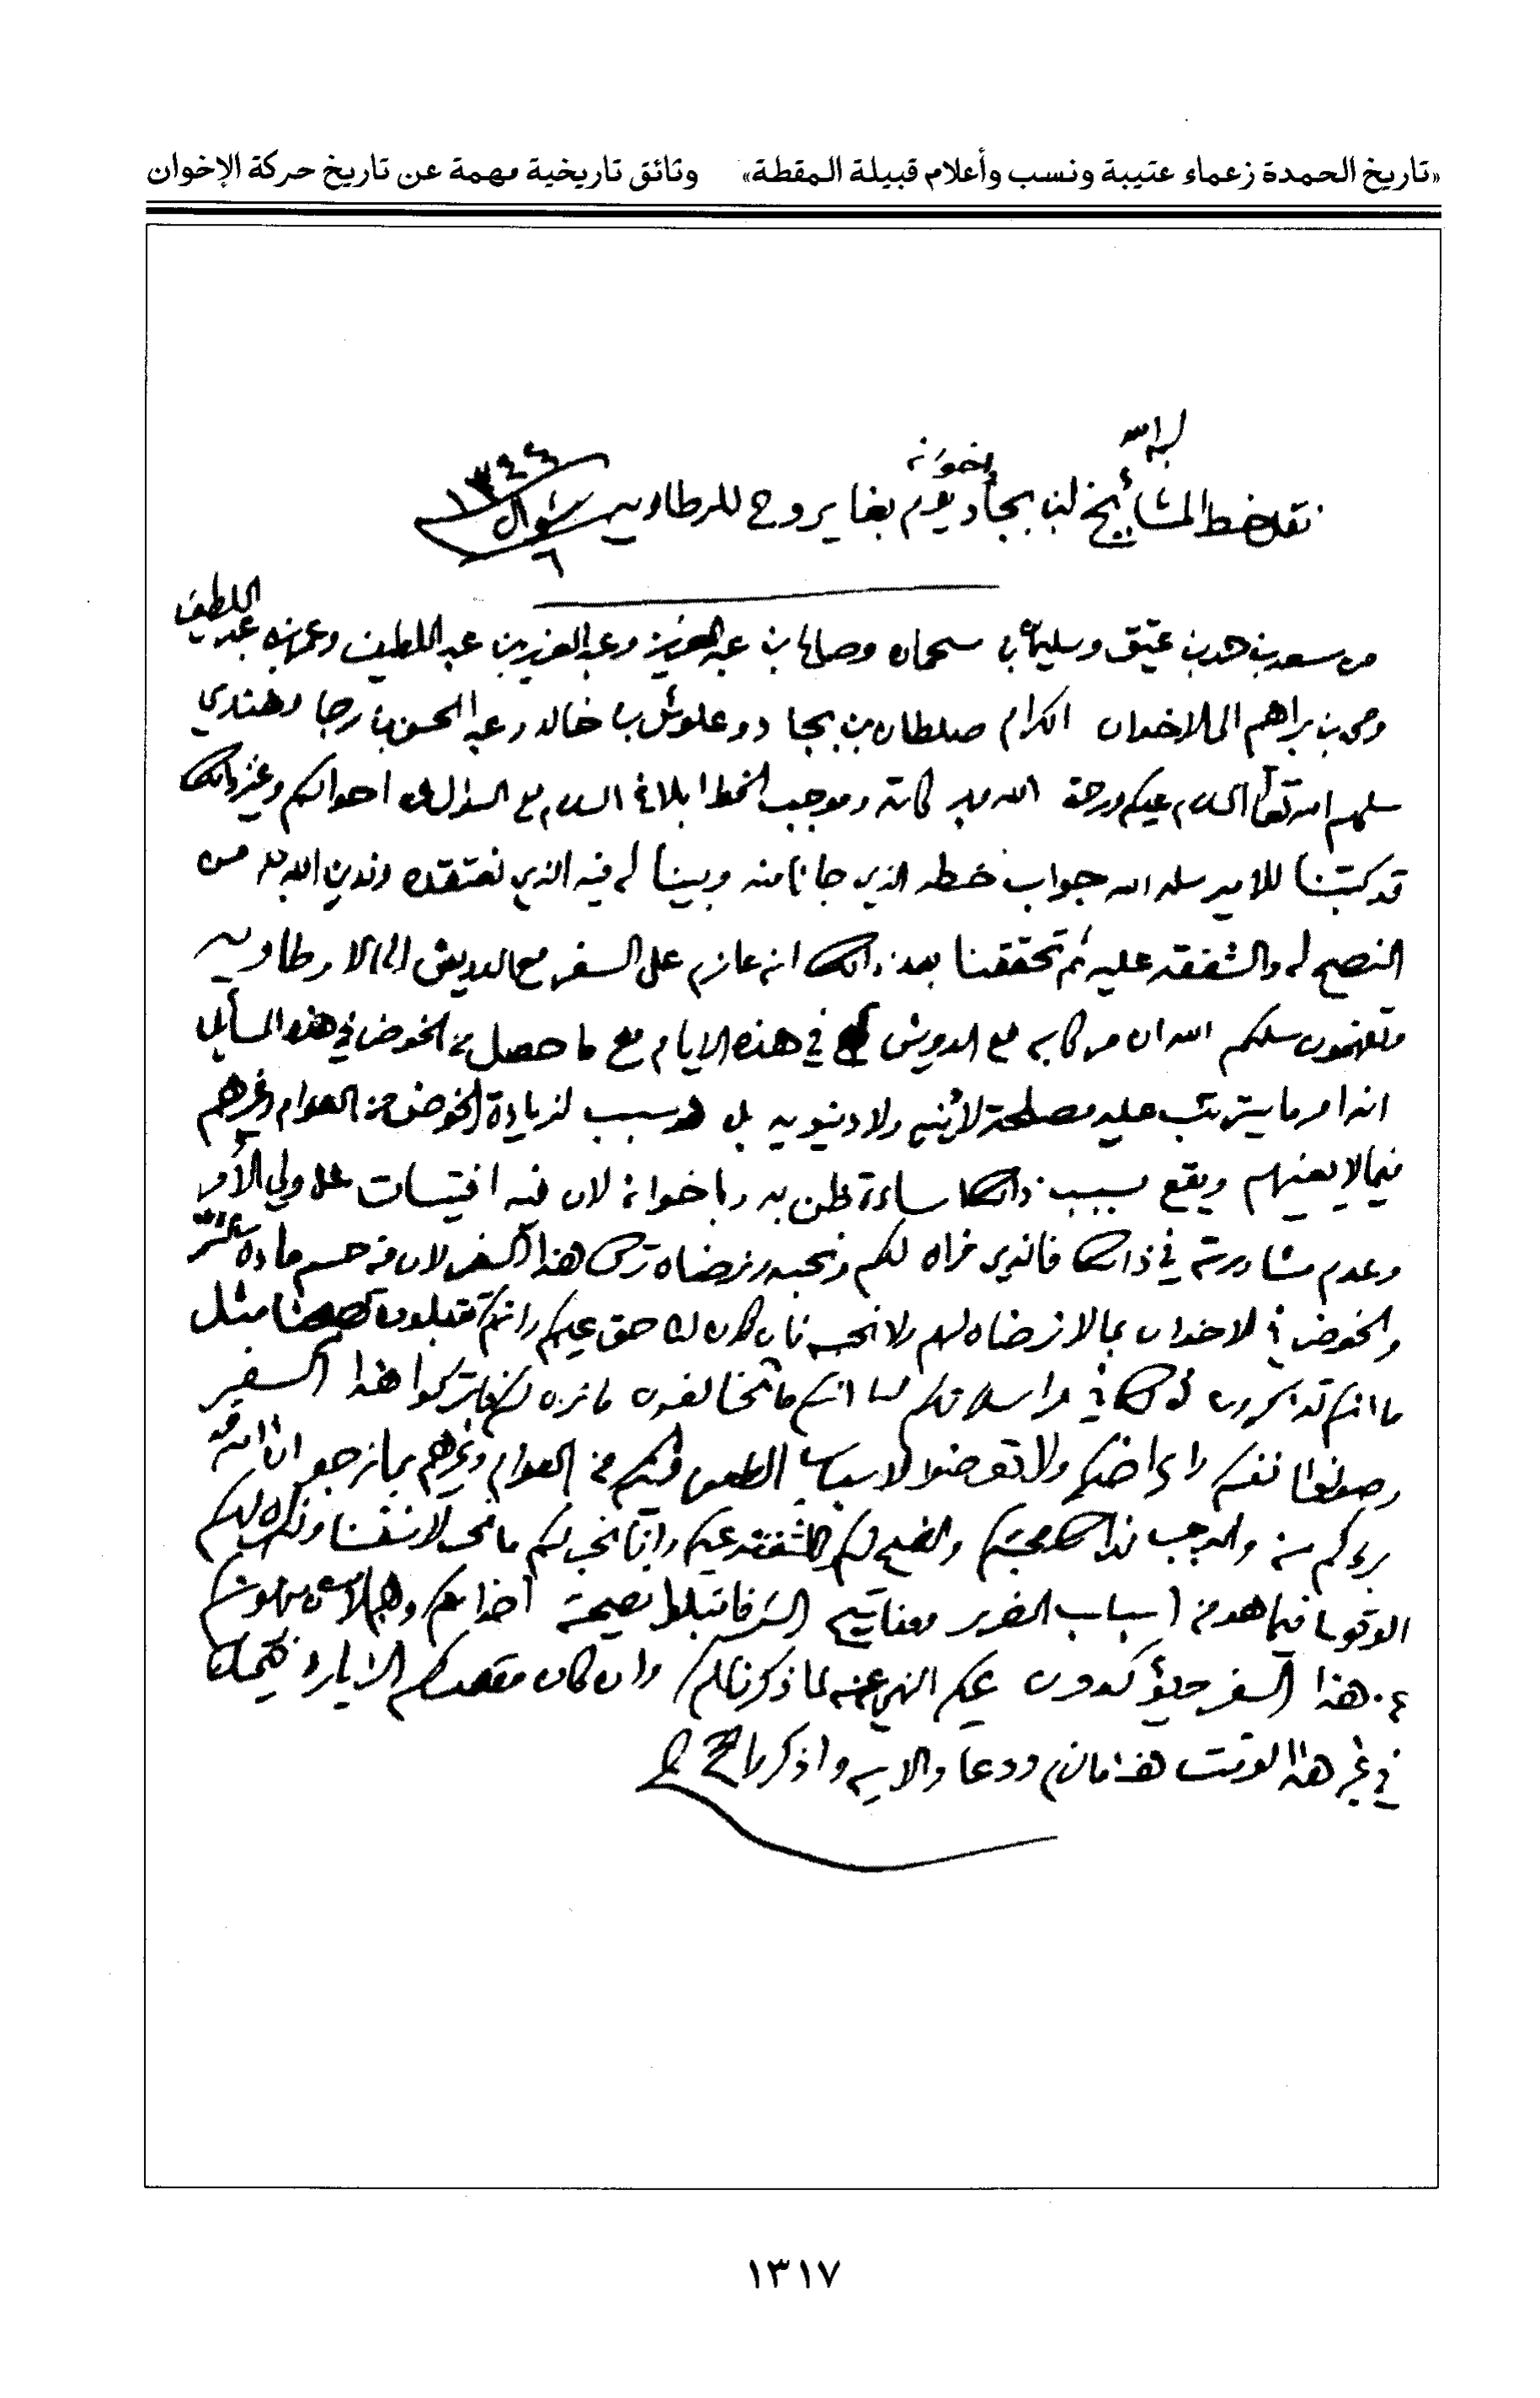 «تاريخ الحمدة زعماء عتيبة ونسب وأعلام قبيلة المقطة» وثائق تاريخية مهمة عن تاريخ حركة الإخوان
واخوانه
نقل خط المشايخ لبن بجاد يوم بغا يروح للرطاويه شوال ٦ ١٣٤٤
من سعد بن حمد بن عتيق وسليمان بن سحمان وصالح بن عبد العزيز وعبد العزيز بن عبد اللطيف وعمر بن عبد اللطيف
ومحمد بن براهيم الى الاخوان الكرام صلطان بن بجاد وعلوش بن خالد وعبد المحسن بن رجا وهندي
سلمهم الله تعالى السلام عليكم ورحمة الله وبركاته وموجب الخط ابلاغ السلام مع السؤال عن احوالكم وغير ذالك
قد كتبنا للامير سلمه الله جواب خطه الذي جانا منه وبينا له فيه الذي نعتقده وندين الله به من
النصح له والشفقه عليه ثم تحققنا بعد ذالك انه عازم على السفر مع الدويش الى الارطاويه
وتفهمون سلمكم الله ان مركابه مع الدويش في هذه الايام مع ما حصل من الخوض في هذه المسأيل
انه امر ما يترتب عليه مصلحة لا دينيه ولا دنيويه بل هو سبب لزيادة الخوض من العوام وغيرهم
فيما لا يعنيهم ويقع بسبب ذالك اساءة ظن به وباخوانه لان فيه افتيات على ولي الأمر
وعدم مشاورته في ذالك فالذي نراه لكم ونحبه ونرضاه ترك هذا السفر لان فيه حسم مادة الشر
والخوض في الاخوان بما لا نرضاه لهم ولا نحبه فان كان لنا حق عليكم وانكم تقبلون نصحنا مثل
ما انتم تذكرون ذالك في مراسلاتكم لنا انكم ما تخالفون ما نراه لكم فاتركوا هذا السفر
وصونوا انفسكم واعراضكم ولا تعرضوا لاسباب الطعن فيكم من العوام وغيرهم بما نرجو ان الله قد
براكم منه والموجب لذالك محبتكم والنصح لكم والشفقة عليكم وانا نحب لكم ما نحب لانفسنا ونكره لكم
الوقوع فيما هو من اسباب الضرر ومفاتيح الشر فاقبلوا نصيحة اخوانكم
هذا السفر عليكم النهي عنه لما ذكرنا لكم وان كان مقصدكم الزيارة
في غير هذا الوقت هذا ما لزم ودعا والايه واذكر
١٣١٧